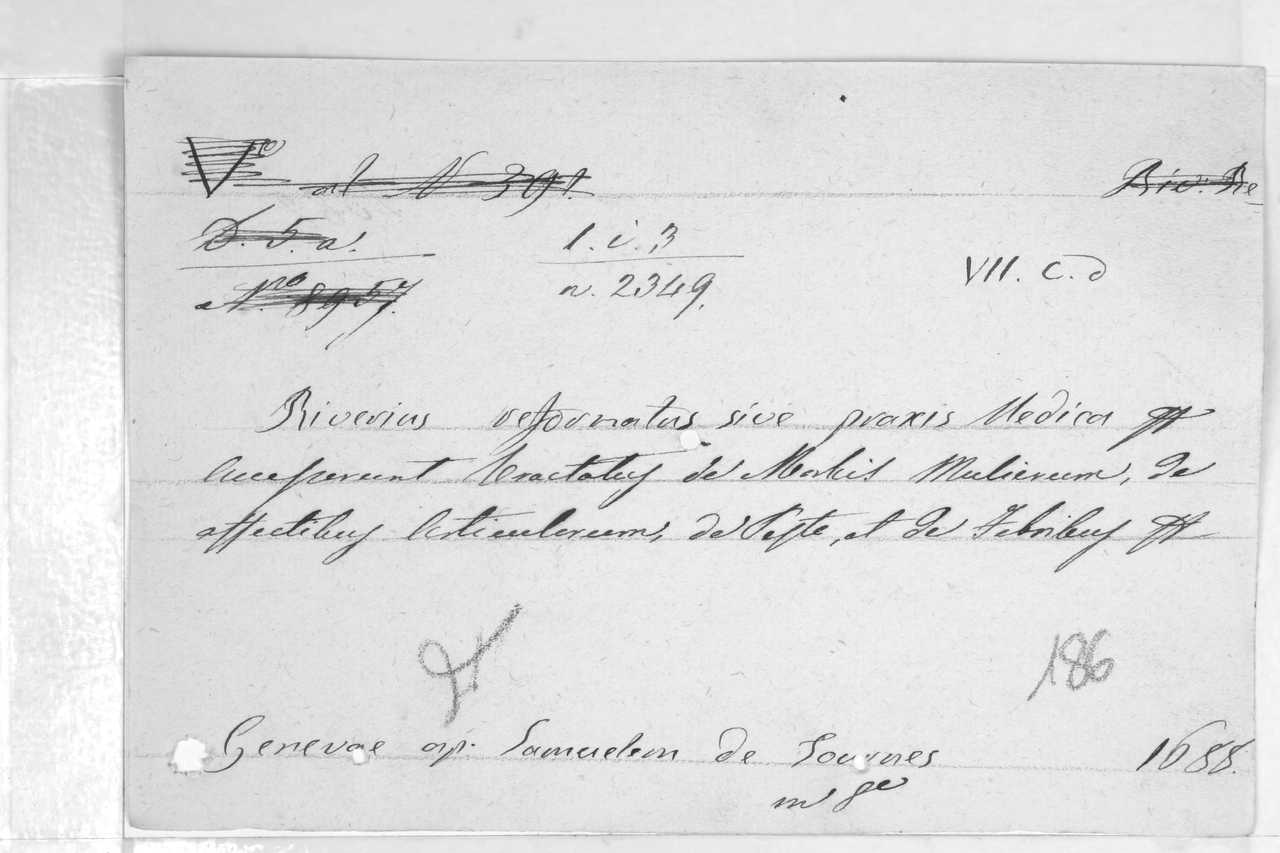 Vº ad N 391. Riv: Re
D. 5. a. 1. i. 3 VII. C. d
Nro 8957. n. 2349.
Riverius reformatus sive praxis Medica
Accesserunt tractatus de Morbis Mulierum, de
affectibus Articulorum, de Peste, et de Febribus
186
Genevae ap. Samuelem de Tournes 1688.
in 8º